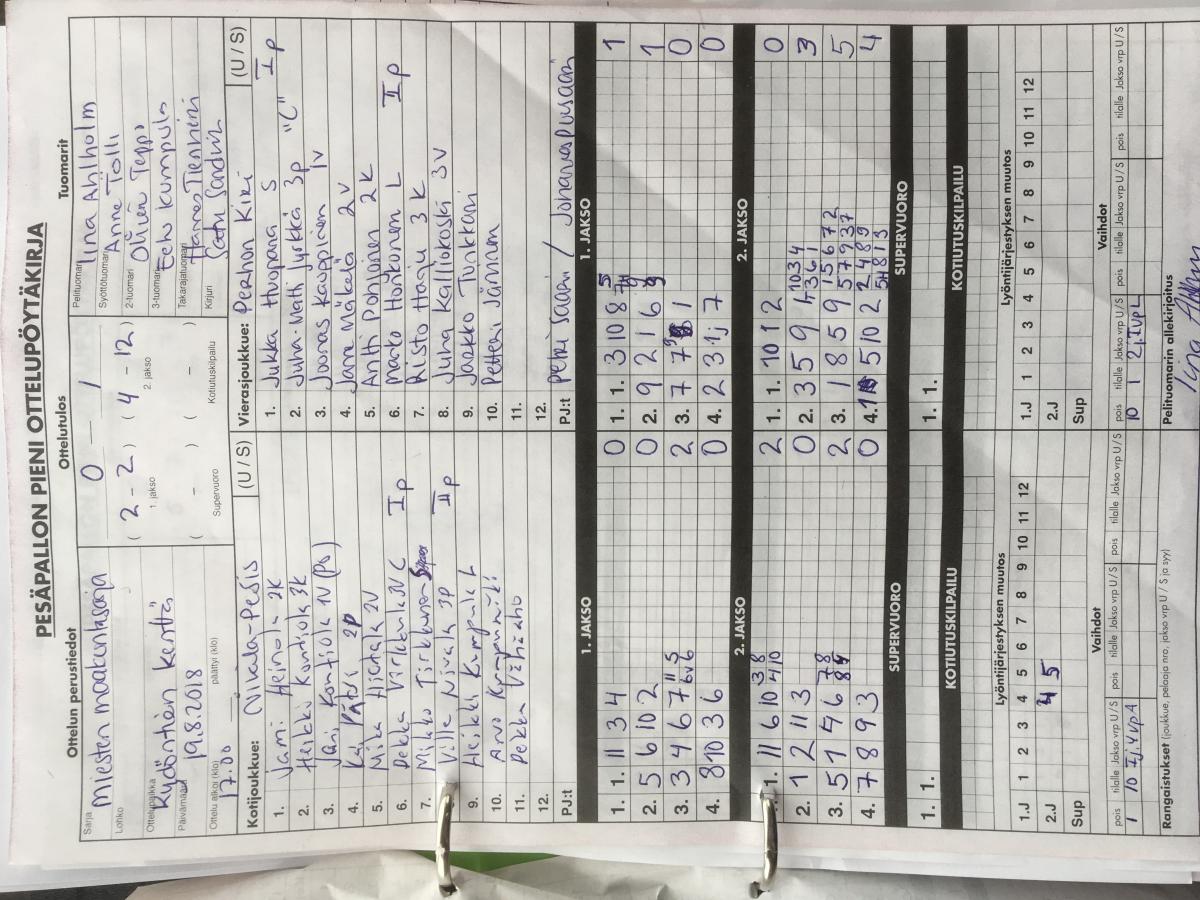 PESÄPALLON PIENI OTTELUPÖYTÄKIRJA
Ottelun perustiedot
Ottelutulos
Tuomarit
Sarja
Miesten maakuntasarja
Lohko
Ottelupaikka
Kydöntien kenttä
Päivämäärä
19.8.2018
Ottelu alkoi (klo)
17.00
päättyi (klo)
0 — 1
( 2 - 2 ) ( 4 - 12 )
1. jakso
2. jakso
( - ) ( - )
Supervuoro
Kotiutuskilpailu
Pelituomari
Iina Ahlholm
Syöttötuomari
Anne Tolli
2-tuomari
Oliver Teppo
3-tuomari
Eetu Kumpula
Takarajatuomari
Hannes Tienhiemi
Kirjuri
Satu Sandvik
Kotijoukkue: Nivala-Pesis (U / S)
1. Jami Heinola 2K
2. Heikki Kontiola 3K
3. Jari Kontiola 1V (PJ)
4. Kai Pätsi 2p
5. Mika Hietala 2V
6. Pekka Virkkula 3V C Ip
7. Mikko Tirkkonen
8. Ville Nivala 3P IIp
9. Heikki Kumpula L
10. Arvo
11. Pekka Vähäaho
12.
PJ:t
Vierasjoukkue: Perhon Kiri (U / S)
1. Jukka Huopana S Ip
2. Juha-Matti Jyrkkä 3p "C"
3. Joonas Kauppinen 1v
4. Janne Mäkelä 2v
5. Antti Pohlonen 2K
6. Marko Honkonen L Ip
7. Risto Harju 3K
8. Juha Kalliokoski 3v
9. Jarkko Tunkkari
10. Petteri Järvinen
11.
12.
PJ:t Petri Saari / Johannes Puusaari
1. JAKSO
1. JAKSO
1. 1. 11 3 4 0
2. 5 6 10 2 0
3. 3 4 6 7 2
4. 8 10 3 6 0
1. 1. 3 10 8 1
2. 9 2 1 6 1
3. 7 1 0
4. 2 3 1j 7 0
2. JAKSO
2. JAKSO
1. 11 6 10 2
2. 1 2 11 3 0
3. 5 1 4 6 2
4. 7 8 9 3 0
1. 1. 10 1 2 0
2. 3 5 9 3
3. 1 8 5 9 5
4. 5 10 2 4
SUPERVUORO
SUPERVUORO
1. 1.
1. 1.
KOTIUTUSKILPAILU
KOTIUTUSKILPAILU
Lyöntijärjestyksen muutos
Lyöntijärjestyksen muutos
1.J 1 2 3 4 5 6 7 8 9 10 11 12
2.J 4 5
Sup
1.J 1 2 3 4 5 6 7 8 9 10 11 12
2.J
Sup
Vaihdot
Vaihdot
pois tilalle Jakso vrp U / S pois tilalle Jakso vrp U / S pois tilalle Jakso vrp U / S
1 10 2j. 4vp A
pois tilalle Jakso vrp U / S pois tilalle Jakso vrp U / S pois tilalle Jakso vrp U / S
10 1 2j. 1vp L
Rangaistukset (joukkue, pelaaja nro, jakso vrp U / S ja syy)
Pelituomarin allekirjoitus
Iina Ahlholm